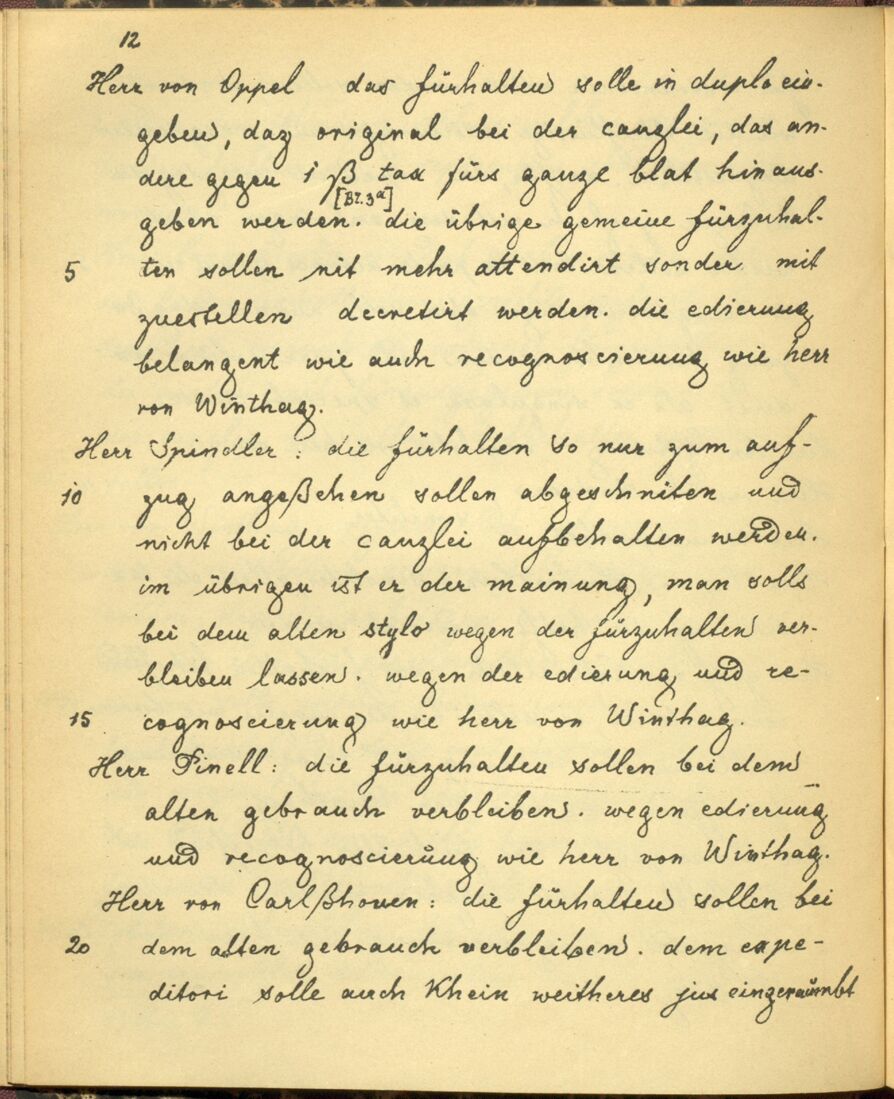 12
Herr von Oppel das fürhalten solle in duplo ein-
geben, daz original bei der canzlei, das an-
dere gegen 1 ß tax fürs ganze blat hinaus-
[Bl. 3a]
geben werden. die übrige gemeine fürzuhal-
5 ten sollen nit mehr attendirt sonder mit
zuestellen decretirt werden. die edierung
belangent wie auch recognoscierung wie herr
von Winthag.
Herr Spindler: die fürhalten so nur zum auf-
10 zug angeßehen sollen abgeschniten und
nicht bei der canzlei aufbehalten werden.
im übrigen ist er der mainung, man solls
bei dem alten stylo wegen der fürzuhalten ver-
bleiben lassen. wegen der edierung und re-
15 cognoscierung wie herr von Winthag.
Herr Pinell: die fürzuhalten sollen bei dem
alten gebrauch verbleiben. wegen edierung
und recognoscierung wie herr von Winthag.
Herr von Carlßhouen: die fürhalten sollen bei
20 dem alten gebrauch verbleiben. dem expe-
ditori solle auch khein weitheres jus eingeraümbt